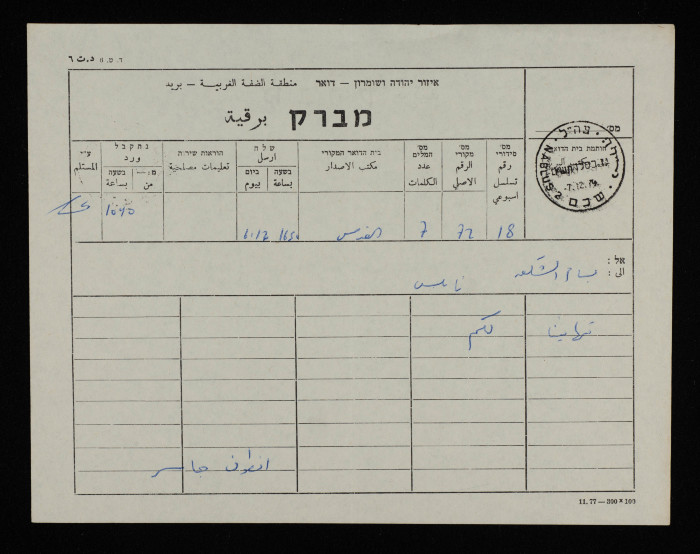 ד.ט. 11 د.ت ٦
איזור יהודה ושומרון – דואר منطقة الضفة الغربية – بريد
מברק برقية
מס׳
חותמת בית הדואר
מס׳ סידורי رقم تسلسل اسبوعي
מס׳ מקורי الرقم الاصلي
מס׳ המלים عدد الكلمات
בית הדואר המקורי مكتب الاصدار
שלח ارسل
בשעה بساعة
ביום بيوم
הוראות שירות تعليمات مصلحية
נתקבל ورد
בשעה بساعة
من
ע״י المستلم
NABLUS
7.12.79
18 72 7 القدس 1650 6.12 1040
אל:
الى: بسام الشكعة نابلس
تهانينا لكم
انطون جاسر
11.77 – 300 × 100